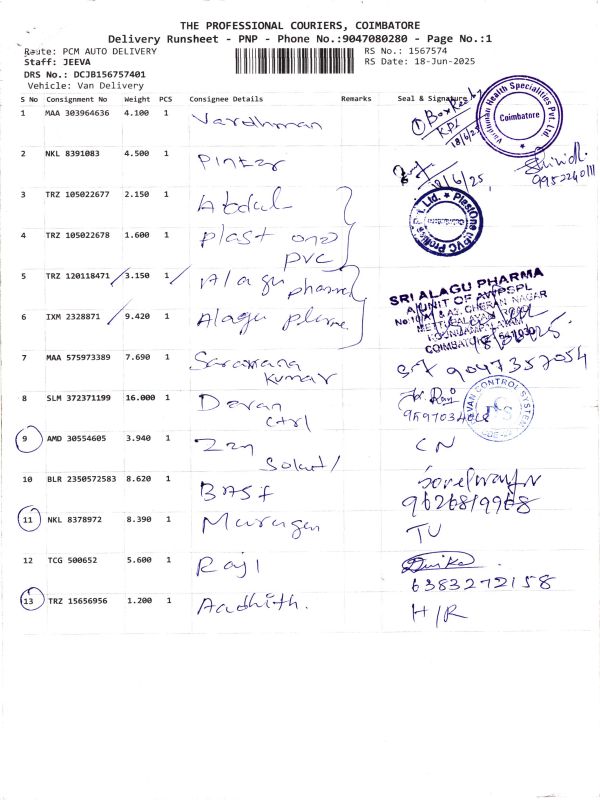 THE PROFESSIONAL COURIERS, COIMBATORE
Delivery Runsheet - PNP - Phone No.:9047080280 - Page No.:1
Route: PCM AUTO DELIVERY
RS No.: 1567574
Staff: JEEVA
RS Date: 18-Jun-2025
DRS No.: DCJB156757401
Vehicle: Van Delivery
S No Consignment No Weight PCS Consignee Details Remarks Seal & Signature
1 MAA 303964636 4.100 1 Vardhman
KPL
18/6/25
Vardhman Health Specialities Pvt. Ltd.
Coimbatore
2 NKL 8391083 4.500 1
18/6/25,
9952240111
3 TRZ 105022677 2.150 1 Abdul
4 TRZ 105022678 1.600 1 Plast one
PVC
PlastOne uPVC Profiles Pvt. Ltd.
5 TRZ 120118471 3.150 1 Alagu pharma
6 IXM 2328871 9.420 1 Alagu
SRI ALAGU PHARMA
A UNIT OF AVPSPL
METTUPALAYAM ROAD
COIMBATORE - 641030
7 MAA 575973389 7.690 1 Saravana
Kumar
9047357054
8 SLM 372371199 16.000 1 Devan
Ctrl
DEVAN CONTROL SYSTEM
DCS
9 AMD 30554605 3.940 1
CN
10 BLR 2350572583 8.620 1 BASF
9626819968
11 NKL 8378972 8.390 1 Murugan
TU
12 TCG 500652 5.600 1 Raji
6383272158
13 TRZ 15656956 1.200 1 Aadhith.
H/R